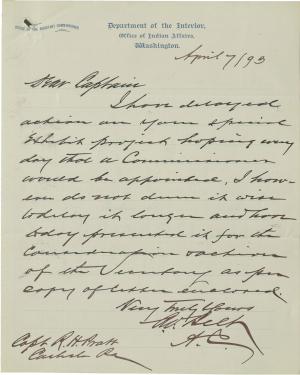 OFFICE OF THE ASSISTANT COMMISSIONER
Department of the Interior,
Office of Indian Affairs,
Washington.
April 7/93
Dear Captain
I have delayed
action on your special
Exhibit project hoping every
day that a Commissioner
would be appointed. I how-
ever do not deem it wise
to delay it longer and have
today presented it for the
consideration & action
of the Secretary as per
copy of letter enclosed.
Very Truly Yours
Belt
A.C.
Capt R. H. Pratt
Carlisle Pa